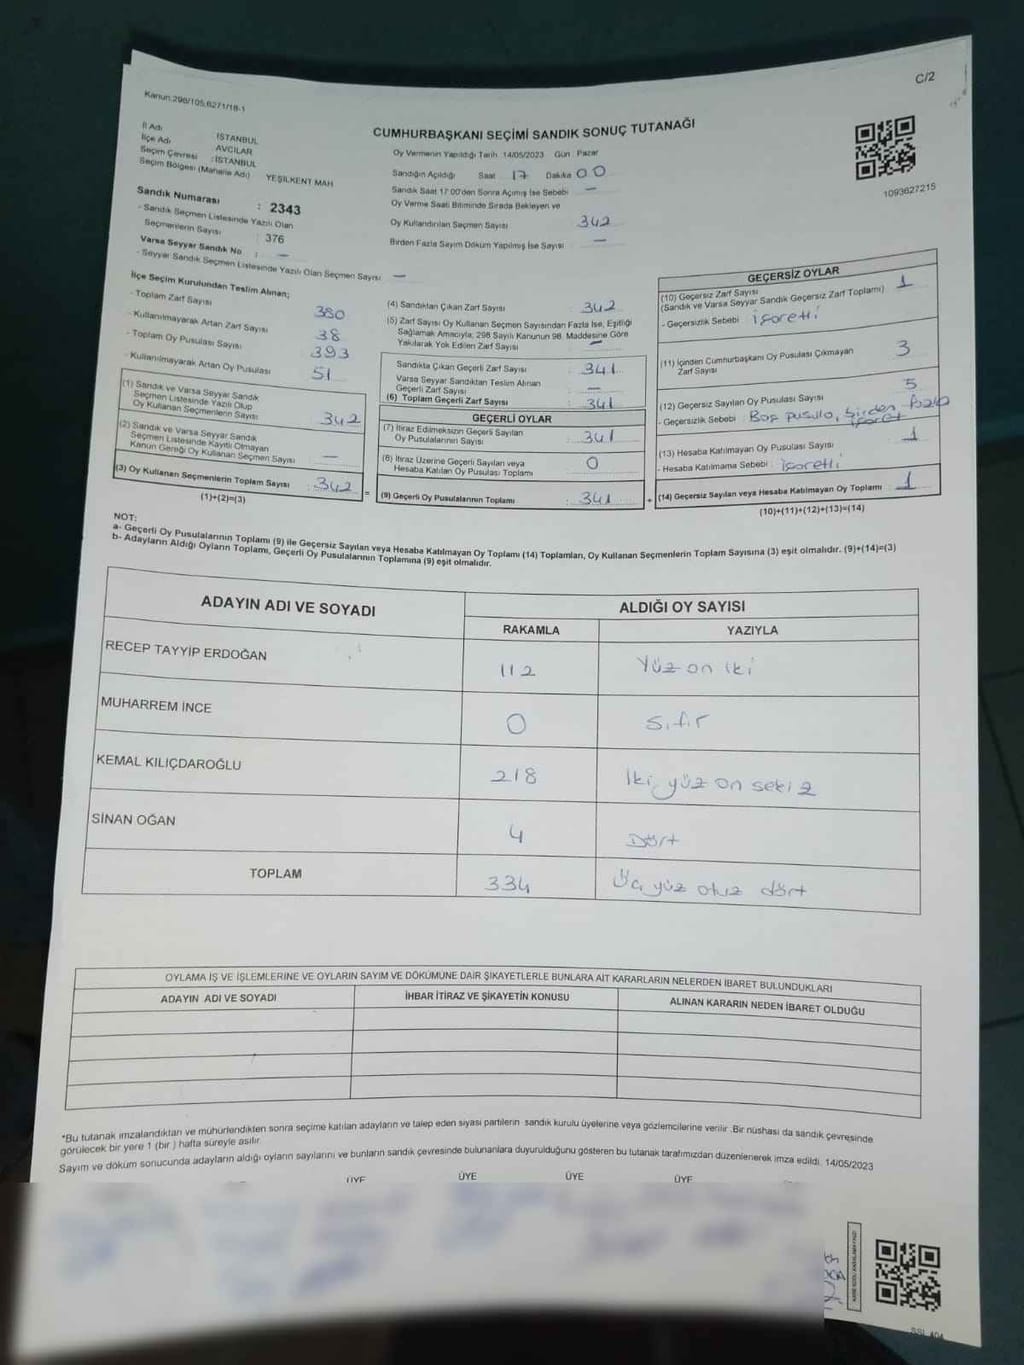 C/2
Kanun:298/105,6271/18-1
CUMHURBAŞKANI SEÇİMİ SANDIK SONUÇ TUTANAĞI
1093627215
İl Adı İSTANBUL
İlçe Adı AVCILAR
Seçim Çevresi : İSTANBUL
Seçim Bölgesi (Mahalle Adı) YEŞİLKENT MAH
Sandık Numarası : 2343
- Sandık Seçmen Listesinde Yazılı Olan
Seçmenlerin Sayısı : 376
Varsa Seyyar Sandık No : —
- Seyyar Sandık Seçmen Listesinde Yazılı Olan Seçmen Sayısı —
Oy Vermenin Yapıldığı Tarih : 14/05/2023 Gün : Pazar
Sandığın Açıldığı Saat 17 Dakika 00
Sandık Saat 17:00'den Sonra Açılmış İse Sebebi —
Oy Verme Saati Bitiminde Sırada Bekleyen ve
Oy Kullandırılan Seçmen Sayısı 342
Birden Fazla Sayım Döküm Yapılmış İse Sayısı —
İlçe Seçim Kurulundan Teslim Alınan;
- Toplam Zarf Sayısı 380
- Kullanılmayarak Artan Zarf Sayısı 38
- Toplam Oy Pusulası Sayısı 393
- Kullanılmayarak Artan Oy Pusulası 51
(1) Sandık ve Varsa Seyyar Sandık
Seçmen Listesinde Yazılı Olup
Oy Kullanan Seçmenlerin Sayısı : 342
(2) Sandık ve Varsa Seyyar Sandık
Seçmen Listesinde Kayıtlı Olmayan
Kanun Gereği Oy Kullanan Seçmen Sayısı —
(3) Oy Kullanan Seçmenlerin Toplam Sayısı : 342 =
(1)+(2)=(3)
(4) Sandıktan Çıkan Zarf Sayısı : 342
(5) Zarf Sayısı Oy Kullanan Seçmen Sayısından Fazla İse, Eşitliği
Sağlamak Amacıyla; 298 Sayılı Kanunun 98. Maddesine Göre
Yakılarak Yok Edilen Zarf Sayısı : —
Sandıkta Çıkan Geçerli Zarf Sayısı : 341
Varsa Seyyar Sandıktan Teslim Alınan
Geçerli Zarf Sayısı : —
(6) Toplam Geçerli Zarf Sayısı : 341
GEÇERLİ OYLAR
(7) İtiraz Edilmeksizin Geçerli Sayılan
Oy Pusulalarının Sayısı : 341
(8) İtiraz Üzerine Geçerli Sayılan veya
Hesaba Katılan Oy Pusulası Toplamı : 0
(9) Geçerli Oy Pusulalarının Toplamı : 341 +
GEÇERSİZ OYLAR
(10) Geçersiz Zarf Sayısı : 1
(Sandık ve Varsa Seyyar Sandık Geçersiz Zarf Toplamı)
- Geçersizlik Sebebi : işaretli
(11) İçinden Cumhurbaşkanı Oy Pusulası Çıkmayan
Zarf Sayısı 3
(12) Geçersiz Sayılan Oy Pusulası Sayısı 5
- Geçersizlik Sebebi : Boş pusula, birden fazla
işaret
(13) Hesaba Katılmayan Oy Pusulası Sayısı : 1
- Hesaba Katılmama Sebebi : işaretli
(14) Geçersiz Sayılan veya Hesaba Katılmayan Oy Toplamı : 1
(10)+(11)+(12)+(13)=(14)
NOT:
a- Geçerli Oy Pusulalarının Toplamı (9) ile Geçersiz Sayılan veya Hesaba Katılmayan Oy Toplamı (14) Toplamları, Oy Kullanan Seçmenlerin Toplam Sayısına (3) eşit olmalıdır. (9)+(14)=(3)
b- Adayların Aldığı Oyların Toplamı, Geçerli Oy Pusulalarının Toplamına (9) eşit olmalıdır.
ADAYIN ADI VE SOYADI ALDIĞI OY SAYISI
RAKAMLA YAZIYLA
RECEP TAYYİP ERDOĞAN 112 Yüz on iki
MUHARREM İNCE 0 Sıfır
KEMAL KILIÇDAROĞLU 218 İki yüz on sekiz
SİNAN OĞAN 4 Dört
TOPLAM 334 Üç yüz otuz dört
OYLAMA İŞ VE İŞLEMLERİNE VE OYLARIN SAYIM VE DÖKÜMÜNE DAİR ŞİKAYETLERLE BUNLARA AİT KARARLARIN NELERDEN İBARET BULUNDUKLARI
ADAYIN ADI VE SOYADI İHBAR İTİRAZ VE ŞİKAYETİN KONUSU ALINAN KARARIN NEDEN İBARET OLDUĞU
*Bu tutanak imzalandıktan ve mühürlendikten sonra seçime katılan adayların ve talep eden siyasi partilerin sandık kurulu üyelerine veya gözlemcilerine verilir .Bir nüshası da sandık çevresinde
görülecek bir yere 1 (bir ) hafta süreyle asılır.
Sayım ve döküm sonucunda adayların aldığı oyların sayılarını ve bunların sandık çevresinde bulunanlara duyurulduğunu gösteren bu tutanak tarafımızdan düzenlenerek imza edildi. 14/05/2023
ÜYE ÜYE ÜYE ÜYE